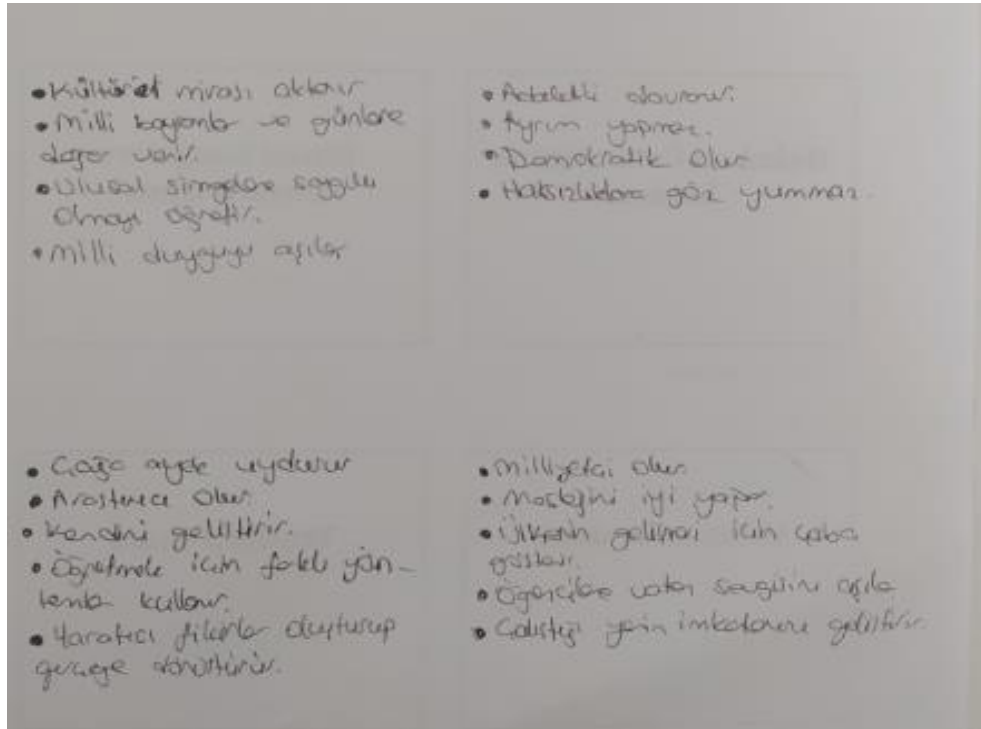 • Kültürel mirası aktarır
• Milli bayramlar ve günlere
değer verir.
• Ulusal simgelere saygılı
olmayı öğretir.
• Milli duyguyu aşılar
• Adaletli davranır.
• Ayrım yapmaz.
• Demokratik olur
• Haksızlıklara göz yummaz.
• Çağa ayak uydurur
• Araştırıcı olur.
• Kendini geliştirir.
• Öğretmek için farklı yön-
temler kullanır.
• Yaratıcı fikirler oluşturup
gerçeğe dönüştürür.
• Milliyetçi olur.
• Mesleğini iyi yapar.
• Ülkenin gelişmesi için çaba
gösterir.
• Öğrencilere vatan sevgisini aşılar
• Çalıştığı yerin imkanlarını geliştirir.